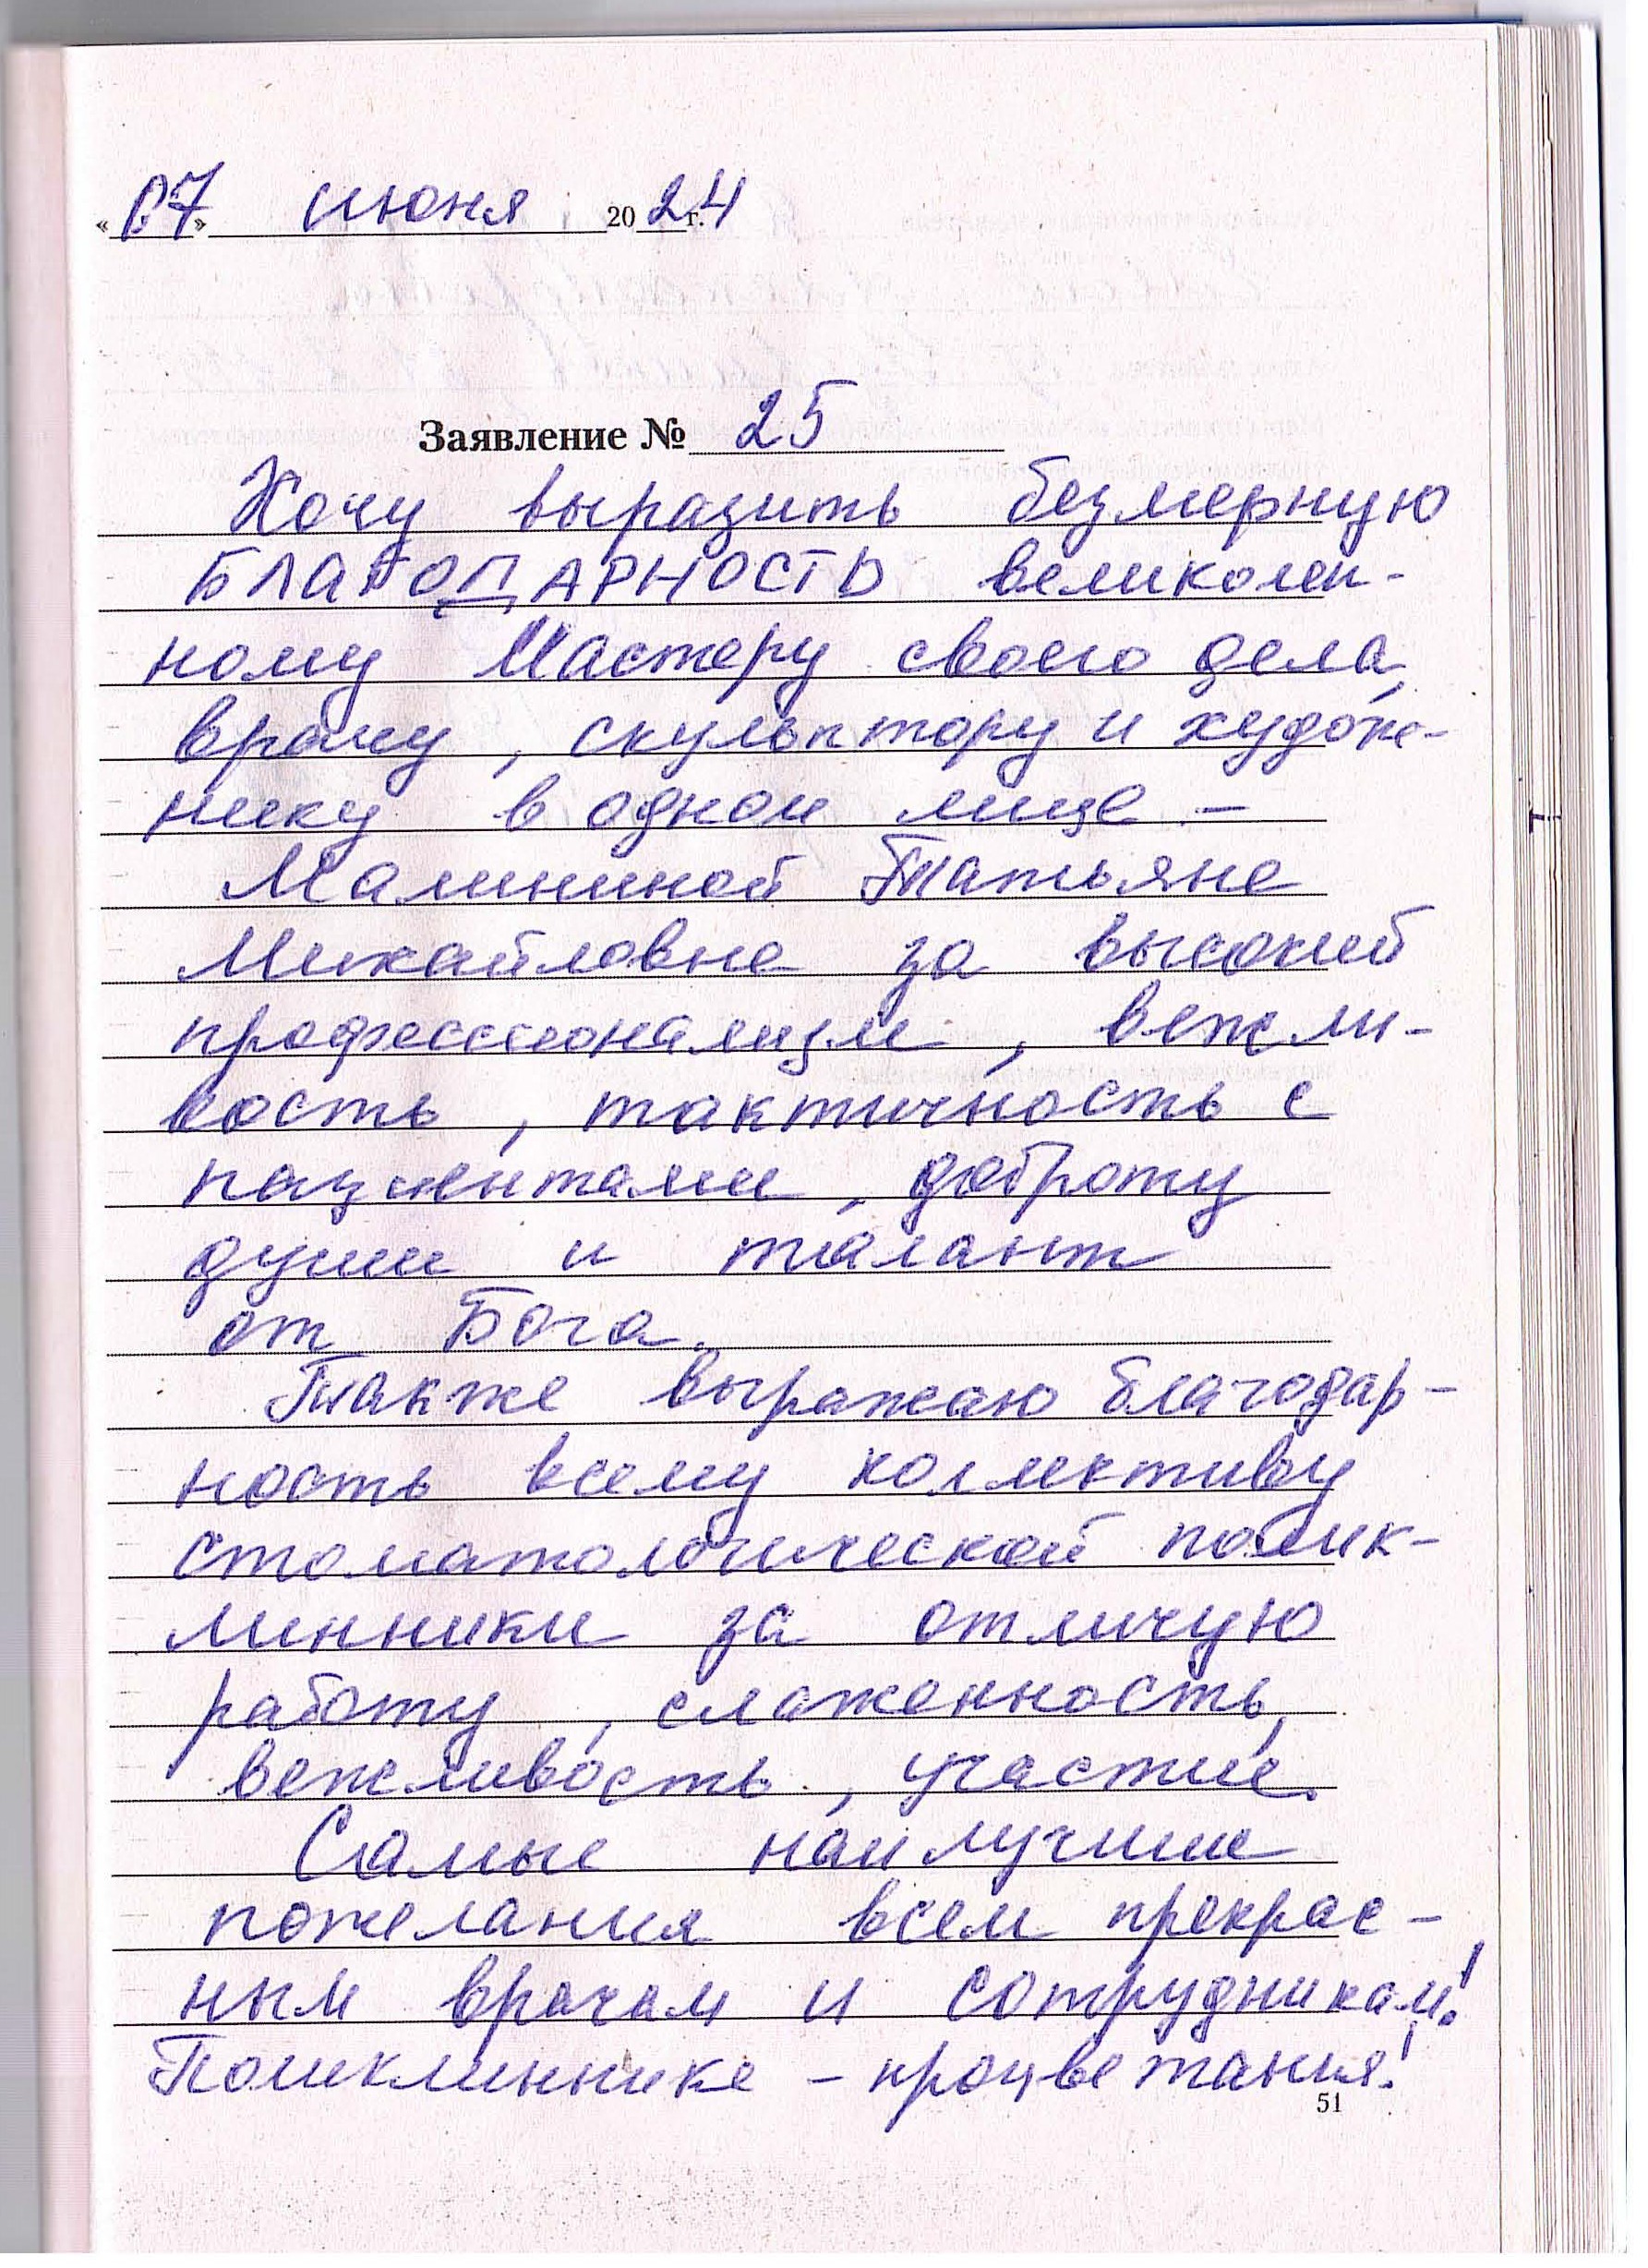 «07» июня 2024 г.
Заявление № 25
Хочу выразить безмерную
БЛАГОДАРНОСТЬ великолеп-
ному Мастеру своего дела,
врачу, скульптору и худож-
нику в одном лице –
Малининой Татьяне
Михайловне за высокий
профессионализм, вежли-
вость, тактичность с
пациентами, доброту
души и талант
от Бога.
Также выражаю благодар-
ность всему коллективу
стоматологической полик-
линники за отличую
работу, слаженность,
вежливость, участие.
Самые наилучшие
пожелания всем прекрас-
ным врачам и сотрудникам!
Поликлиннике – процветания!
51